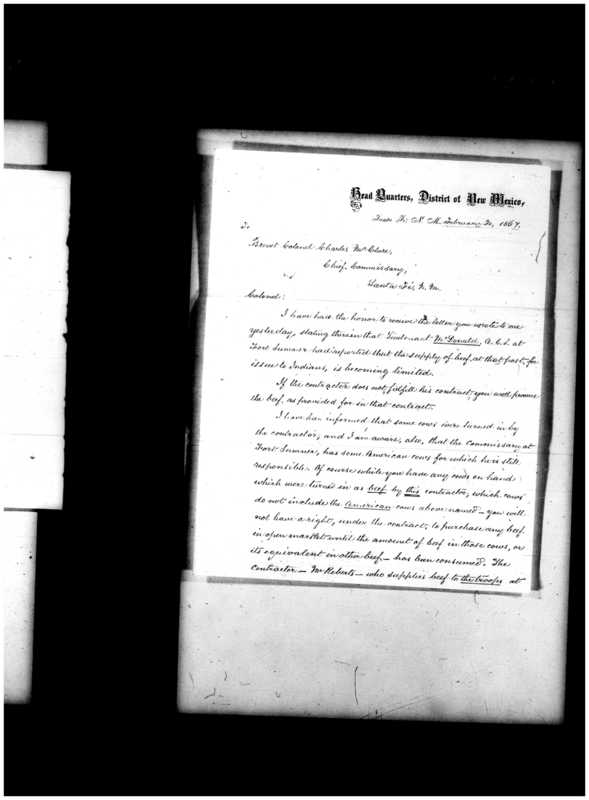 Head Quarters, District of New Mexico,
Santa Fé, N. M. February 20, 1867.
To
Brevet Colonel Charles McClure,
Chief Commissary,
Santa Fé, N. M.
Colonel:
I have had the honor to receive the letter you wrote to me
yesterday, stating therein that Lieutenant McDonald, A.C.S. at
Fort Sumner had reported that the supply of beef, at that post, for
issue to Indians, is becoming limited.
If the contractor does not fulfill his contract, you will procure
the beef, as provided for in that contract.
I have been informed that some cows were turned in by
the contractor, and I am aware, also, that the commissary at
Fort Sumner, has some American cows for which he is still
responsible. Of course while you have any cows on hand
which were turned in as beef by this contractor, which cows
do not include the American cows above named – you will
not have a right, under the contract, to purchase any beef
in open market until the amount of beef in those cows, or
its equivalent in other beef, – has been consumed. The
contractor – Mr Roberts – who supplies beef to the troops at